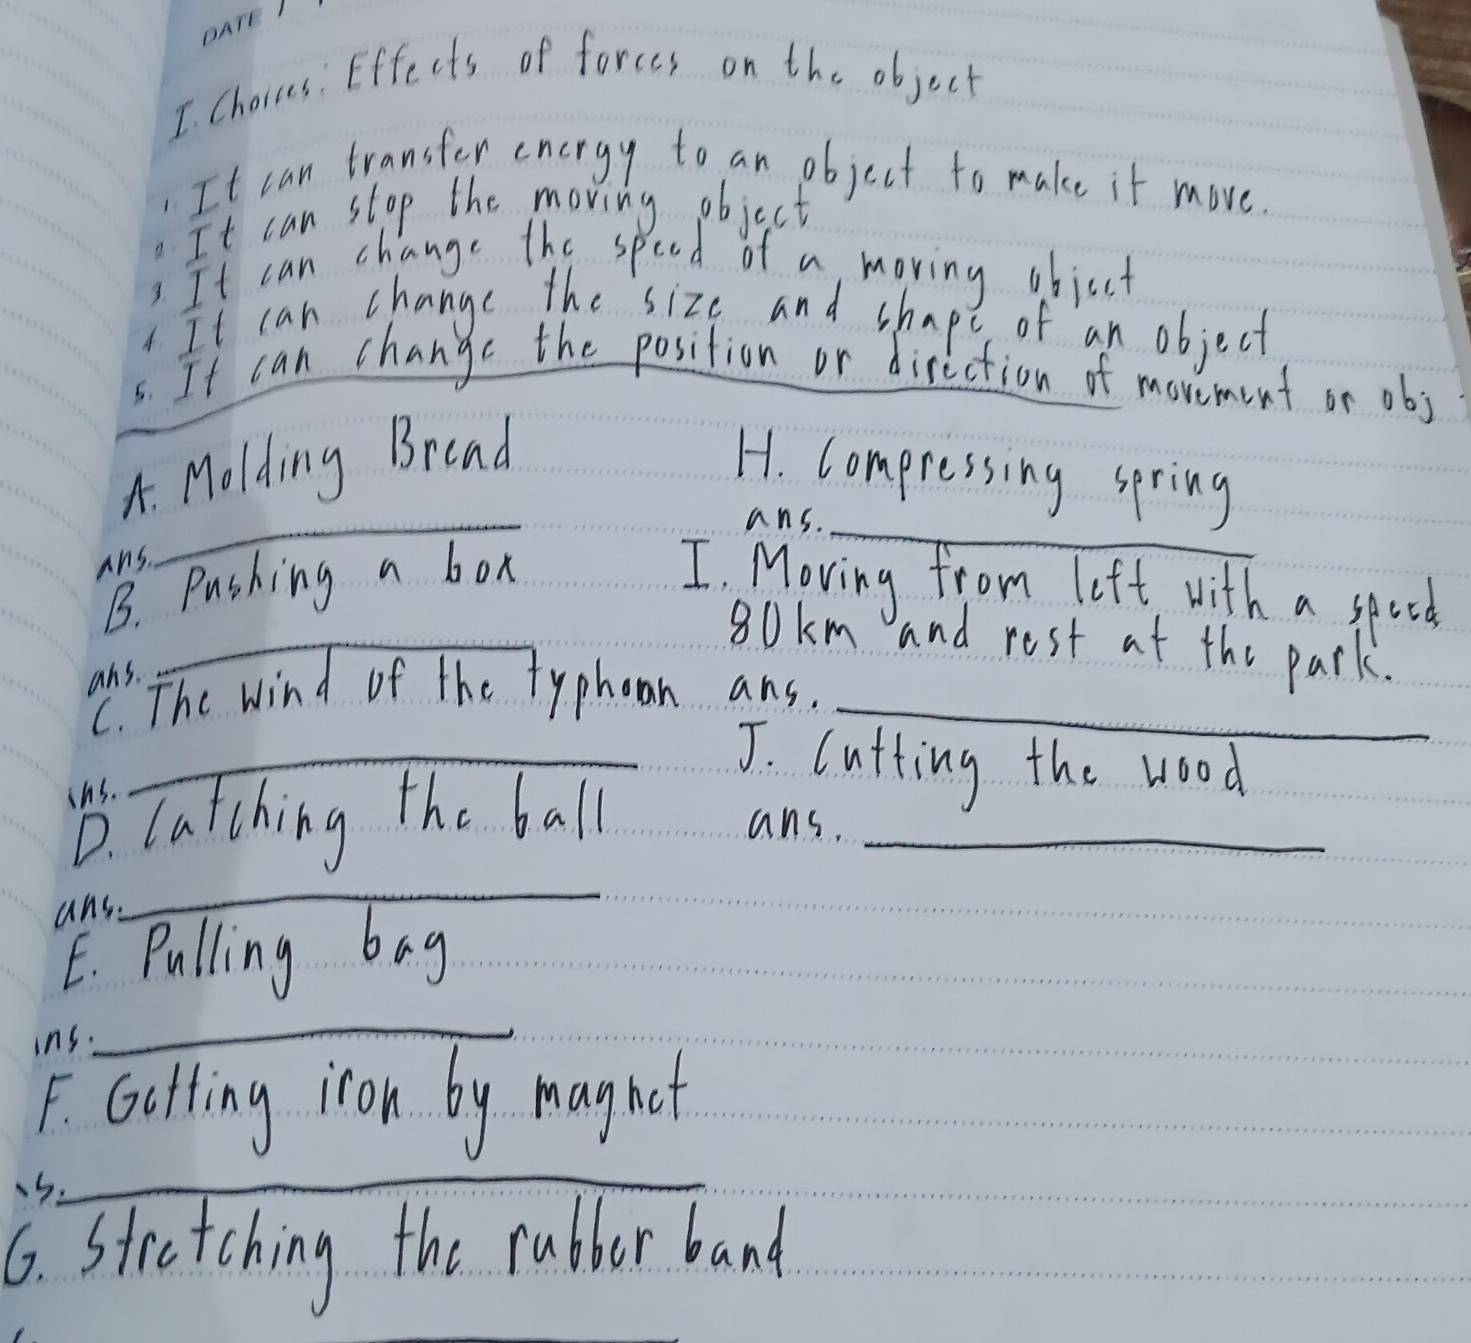 DATE
I. Choices: Effects of forces on the object
1. It can transfer energy to an object to make it move.
2. It can stop the moving object
3. It can change the speed of a moving object
4. It can change the size and shape of an object
5. It can change the position or direction of movement or obj
A. Molding Bread
ans.
B. Pushing a box
ans.
C. The wind of the typhoon
ans.
D. Catching the ball
ans.
E. Pulling bag
ins.
F. Getting iron by magnet
s.
G. Stretching the rubber band
H. Compressing spring
ans.
I. Moving from left with a speed
80km and rest at the park.
ans.
J. Cutting the wood
ans.